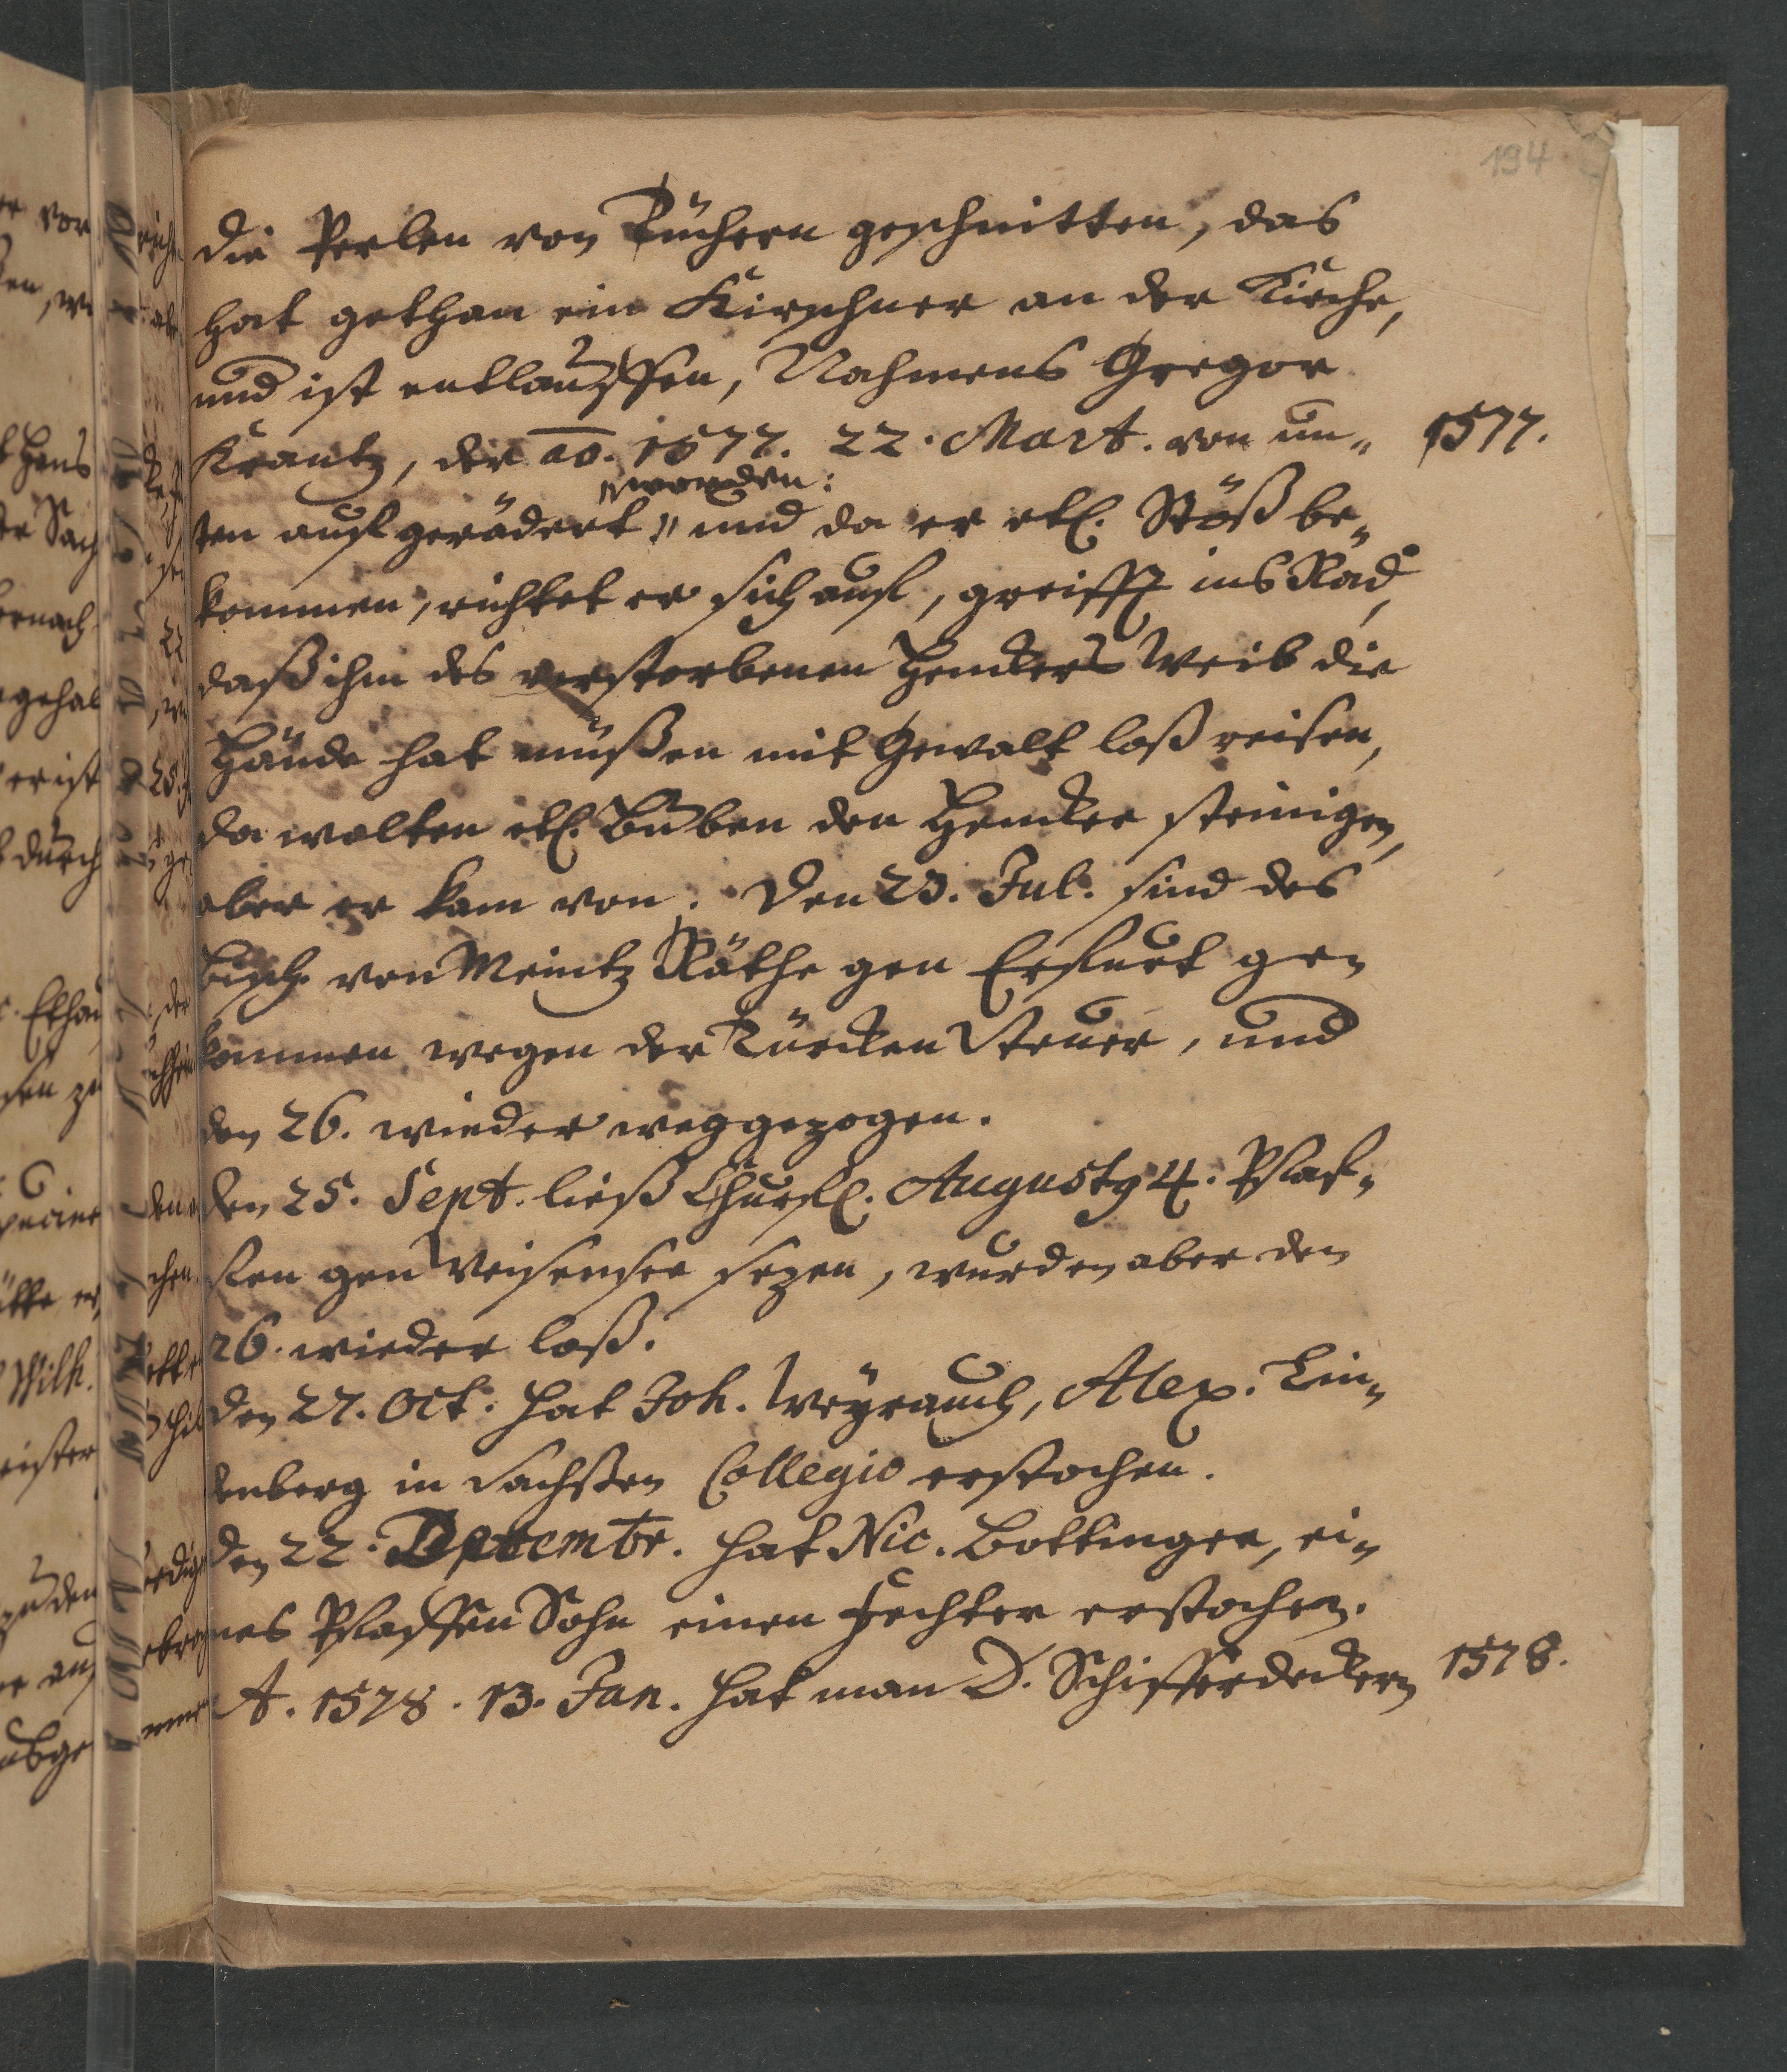 194
die Perlen von Tüchern geschnitten, das
hat gethan ein Kirschner an der Kirche,
und ist entlauffen, Nahmens Gregor
Krantz, der ao. 1577. 22. Mart. von un„ 1577.
worden:
ten auf gerädert „ und da er etl. Stöß be„
kommen, richtet er sich auf, greifft ins Rad,
daß ihm des verstorbenen Henckers Weib die
Hände hat müßen mit Gewalt loß reisen,
da wolten etl. Buben den Hencker steinigen,
aber er kam von. Den 23. Jul. sind des
Bisch. von Meintz Räthe gen Erfurt ge„
kommen wegen der Türcken Steuer, und
den 26. wieder weggezogen.
den 25. Sept. ließ Churfl. Augusty 4. Pfaf„
fen gen Weisensee sezen, wurden aber den
26. wieder loß.
den 27. Oct. hat Joh. Weyrauch, Alex. Lin„
denberg in Sachßen Collegio erstochen.
den 22. hat Nic. Bottinger, ei„
nes Pfaffen Sohn einen Fechter erstochen.
A. 1578. 13. Jan. hat man D. Schifferdeckern 1578.